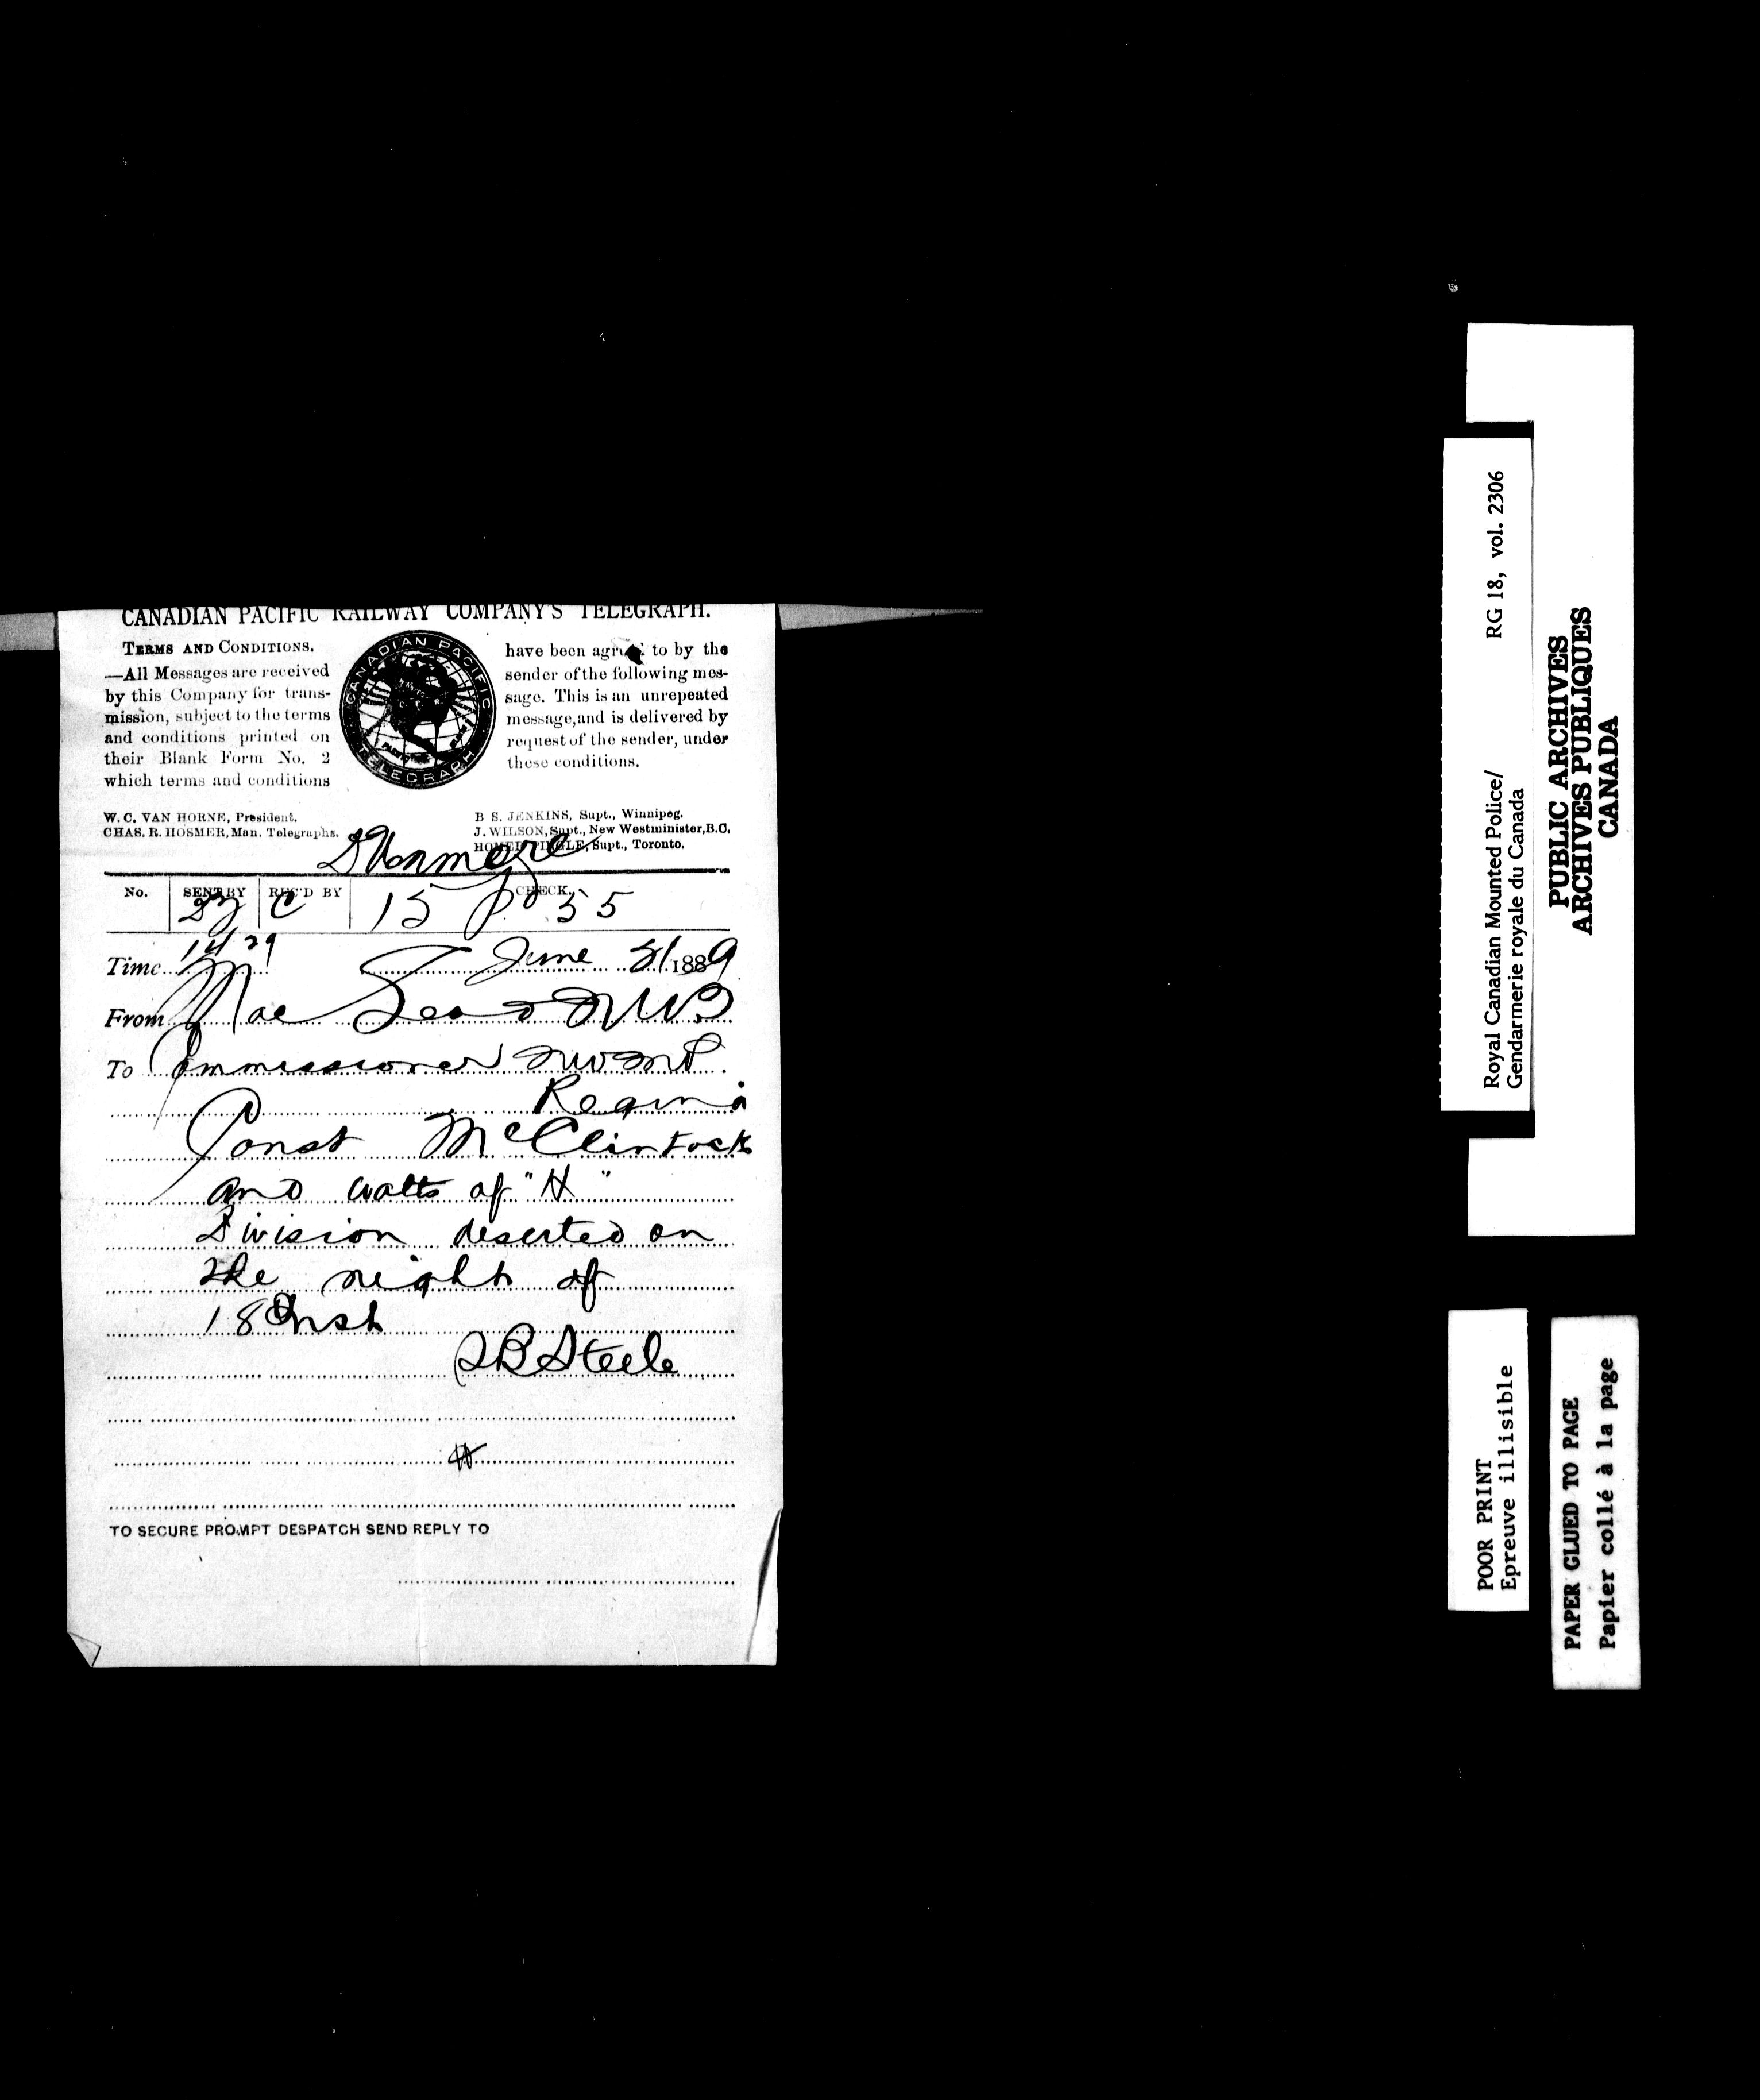 CANADIAN PACIFIC RAILWAY COMPANY'S TELEGRAPH.
TERMS AND CONDITIONS.
—All Messages are received
by this Company for trans-
mission, subject to the terms
and conditions printed on
their Blank Form No. 2
which terms and conditions
CANADIAN PACIFIC
TELEGRAPH
have been agreed to by the
sender of the following mes-
sage. This is an unrepeated
message, and is delivered by
request of the sender, under
these conditions.
W. C. VAN HORNE, President.
CHAS. R. HOSMER, Man. Telegraphs.
B S. JENKINS, Supt., Winnipeg.
J. WILSON, Supt., New Westminister, B.C.
HOMER PINGLE, Supt., Toronto.
No. SENT BY REC'D BY CHECK.
C 15 pd 55
Time June 1889
From Mac Leod NWT
To Commissioner NWMP
Regina
Const McClintock
and Watts of "H"
Division deserted on
the night of
18 Inst
SB Steele
TO SECURE PROMPT DESPATCH SEND REPLY TO
Royal Canadian Mounted Police/ RG 18, vol. 2306
Gendarmerie royale du Canada
PUBLIC ARCHIVES
ARCHIVES PUBLIQUES
CANADA
POOR PRINT
Epreuve illisible
PAPER GLUED TO PAGE
Papier collé à la page